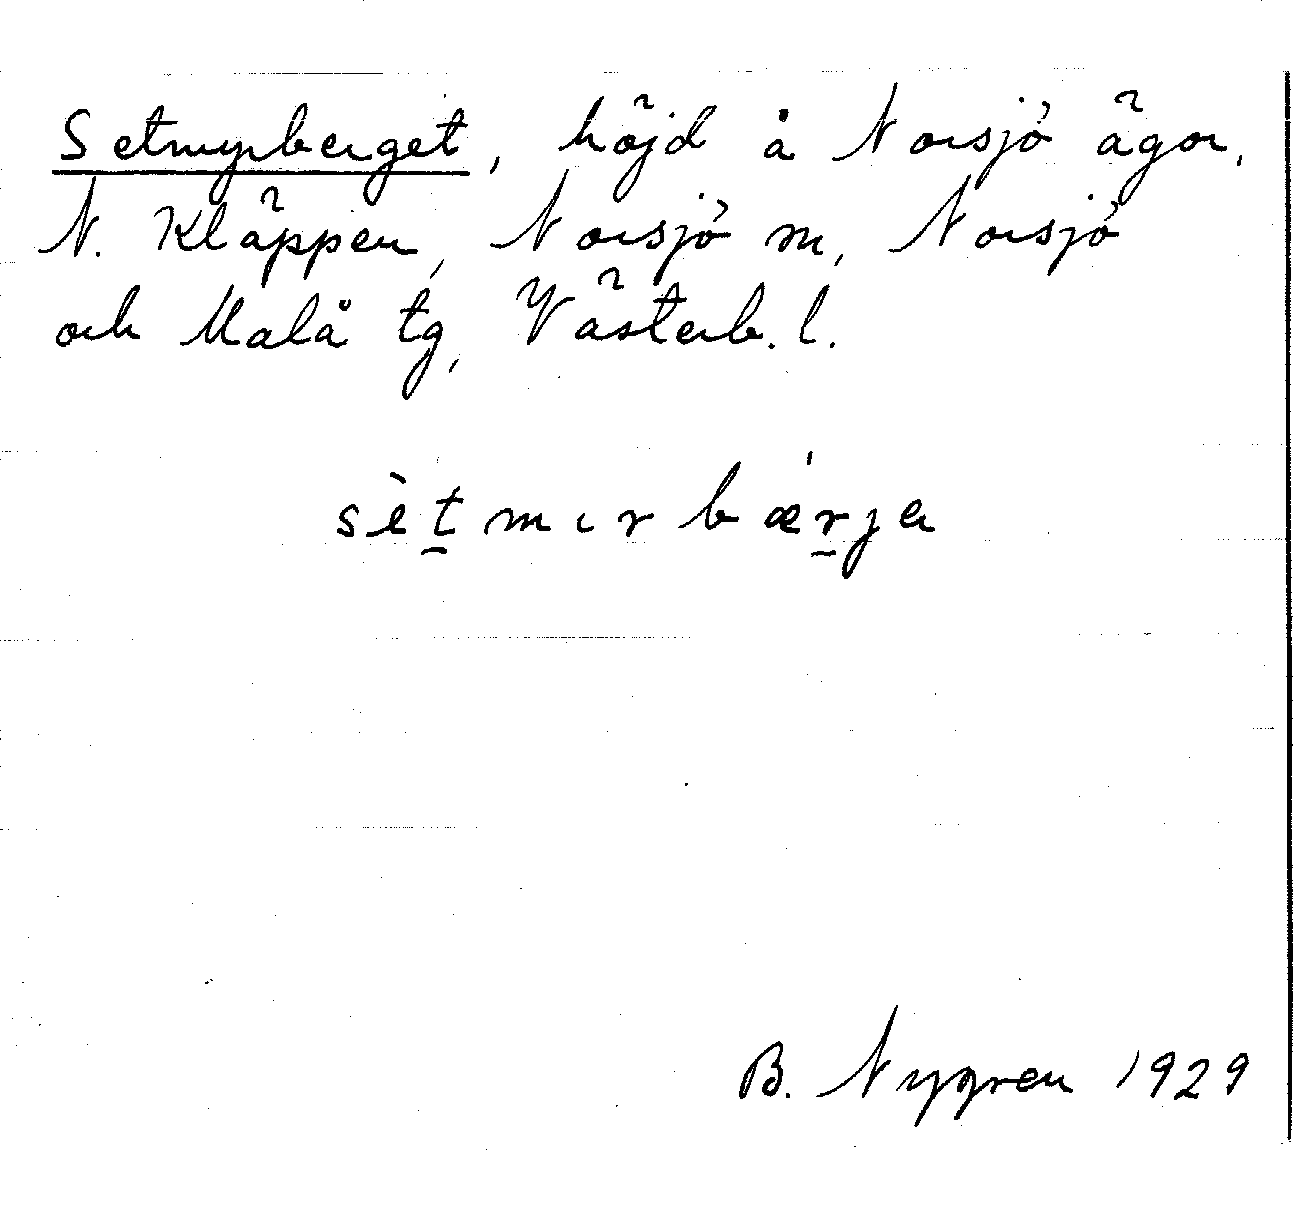 Setmyrberget, höjd å Norsjö ägor,
N. Kläppen, Norsjö m, Norsjö
och Malå tg, Västerb. l.
sèt̠mɩrbǽr̠ja
B. Nygren 1929